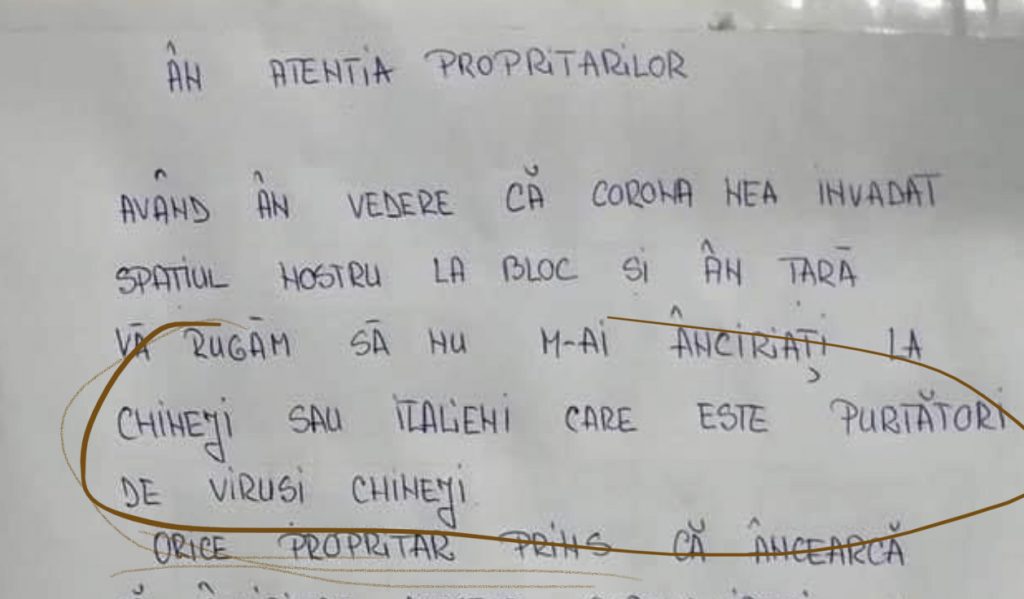 ÂN ATENTIA PROPRITARILOR
AVÂND ÂN VEDERE CĂ CORONA NEA INVADAT
SPATIUL NOSTRU LA BLOC SI ÂN TARĂ
VĂ RUGĂM SĂ NU M-AI ÂNCIRIAȚI LA
CHINEZI SAU ITALIENI CARE ESTE PURTĂTORI
DE VIRUSI CHINEZI
ORICE PROPRITAR PRINS CĂ ÂNCEARCĂ